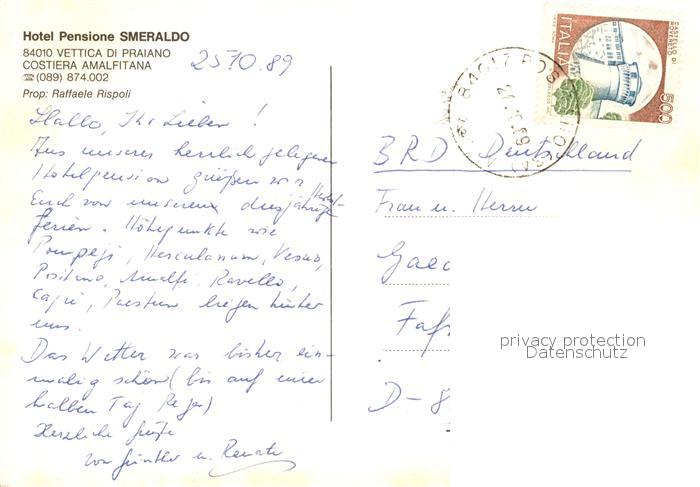 Hotel Pensione SMERALDO
84010 VETTICA DI PRAIANO
COSTIERA AMALFITANA
☎(089) 874.002
Prop: Raffaele Rispoli
25.10.89
Hallo, Ihr Lieben !
Aus unserer herrlich gelegenen
Hotelpension grüßen wir
Euch von unseren diesjährigen Herbst-
ferien. Höhepunkte wie
Pompeji, Herculanum, Vesuv,
Positano, Amalfi, Ravello,
Capri, Paestum liegen hinter
uns.
Das Wetter war bisher ein-
malig schön (bis auf einen
halben Tag Regen)
Herzliche Grüße
von Günther u. Renate
ITALIA
CASTELLO DI
500
84017 POSITANO (SA)
BRD Deutschland
Frau u. Herrn
Gaed
Faß
D-8
privacy protection
Datenschutz